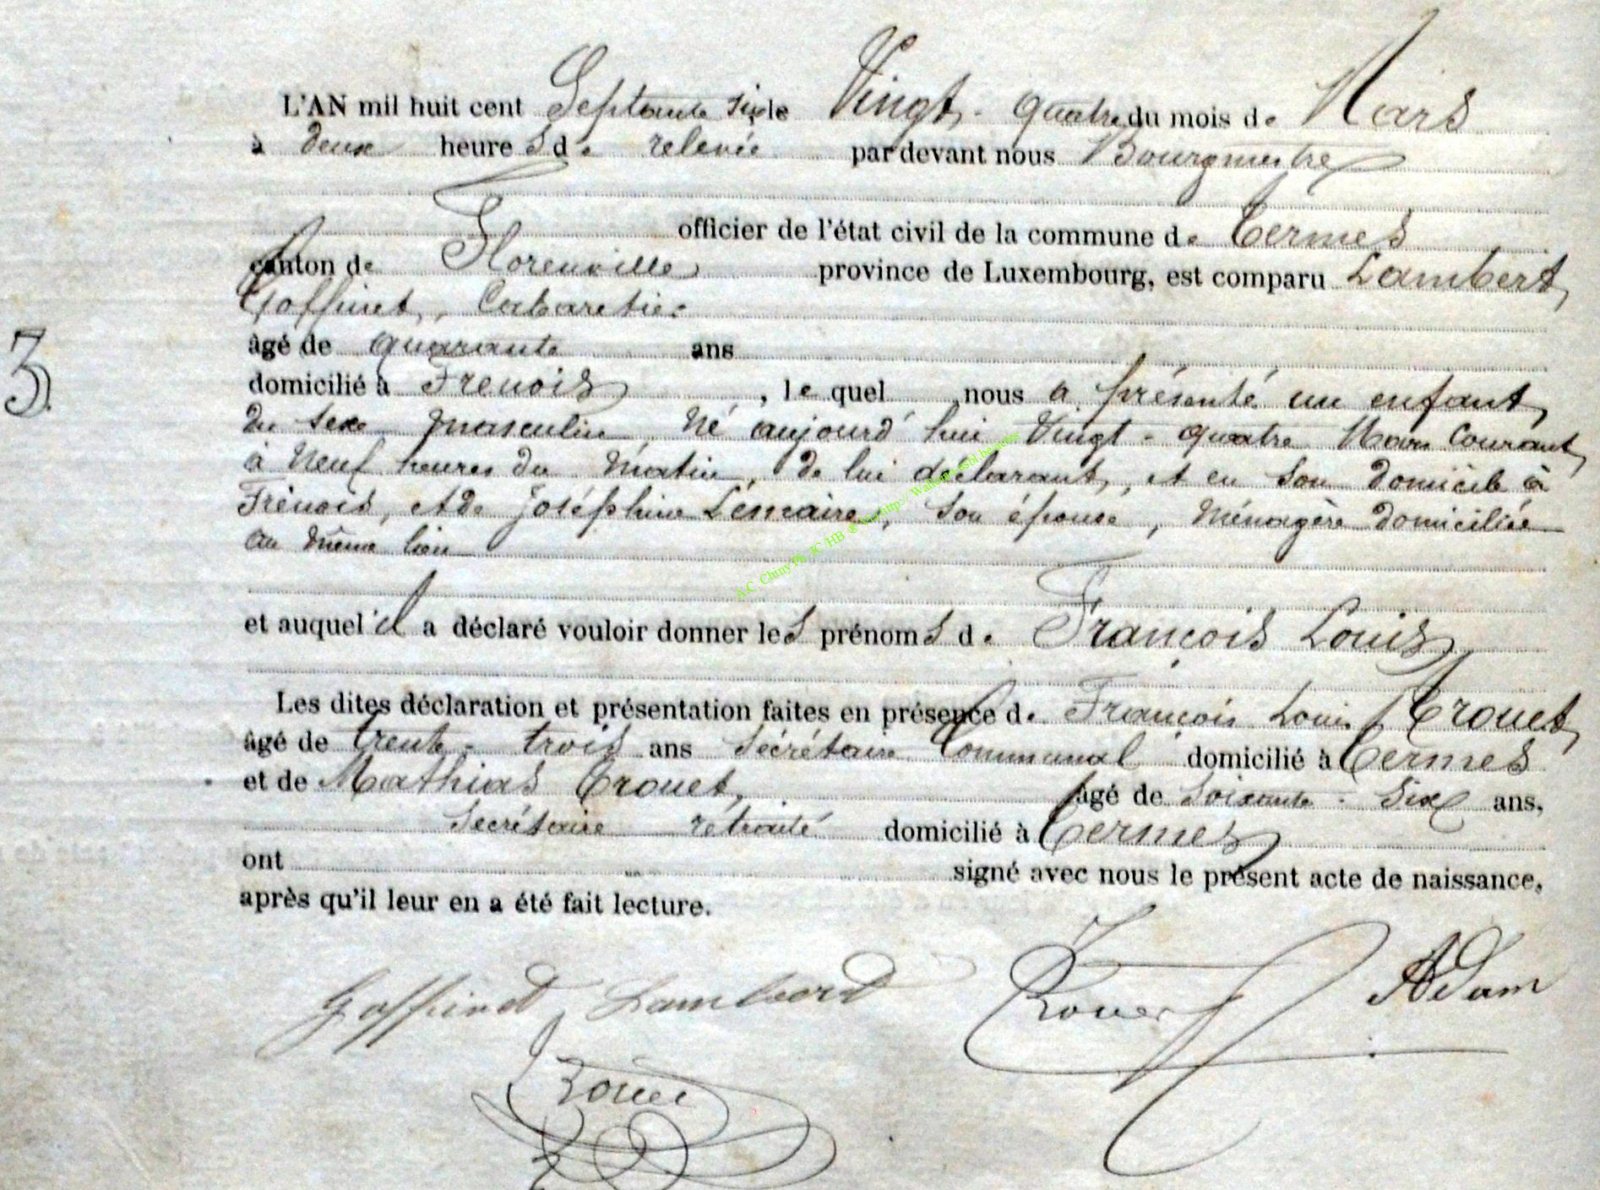 L'AN mil huit cent Septante six le Vingt-quatre du mois de Mars
à deux heures de relevée par devant nous Bourgmestre
officier de l'état civil de la commune de Termes
canton de Florenville province de Luxembourg, est comparu Lambert
Goffinet, Cabaretier
âgé de quarante ans
3 domicilié à Frenois, lequel nous a présenté un enfant
du sexe masculin, né aujourd'hui Vingt-quatre Mars Courant
à Neuf heures du matin, de lui déclarant, et en son domicile à
Frénois, et de Joséphine Lémaire, son épouse, Ménagère domiciliée
au même lieu
et auquel il a déclaré vouloir donner les prénoms de François Louis
Les dites déclaration et présentation faites en présence de François Louis Trouet
âgé de trente-trois ans Secrétaire Communal domicilié à Termes
et de Mathias Trouet, âgé de Soixante-Six ans,
Secrétaire retraité domicilié à Termes
ont signé avec nous le présent acte de naissance,
après qu'il leur en a été fait lecture.
Goffinet Lamberd Trouet Adam
Trouet